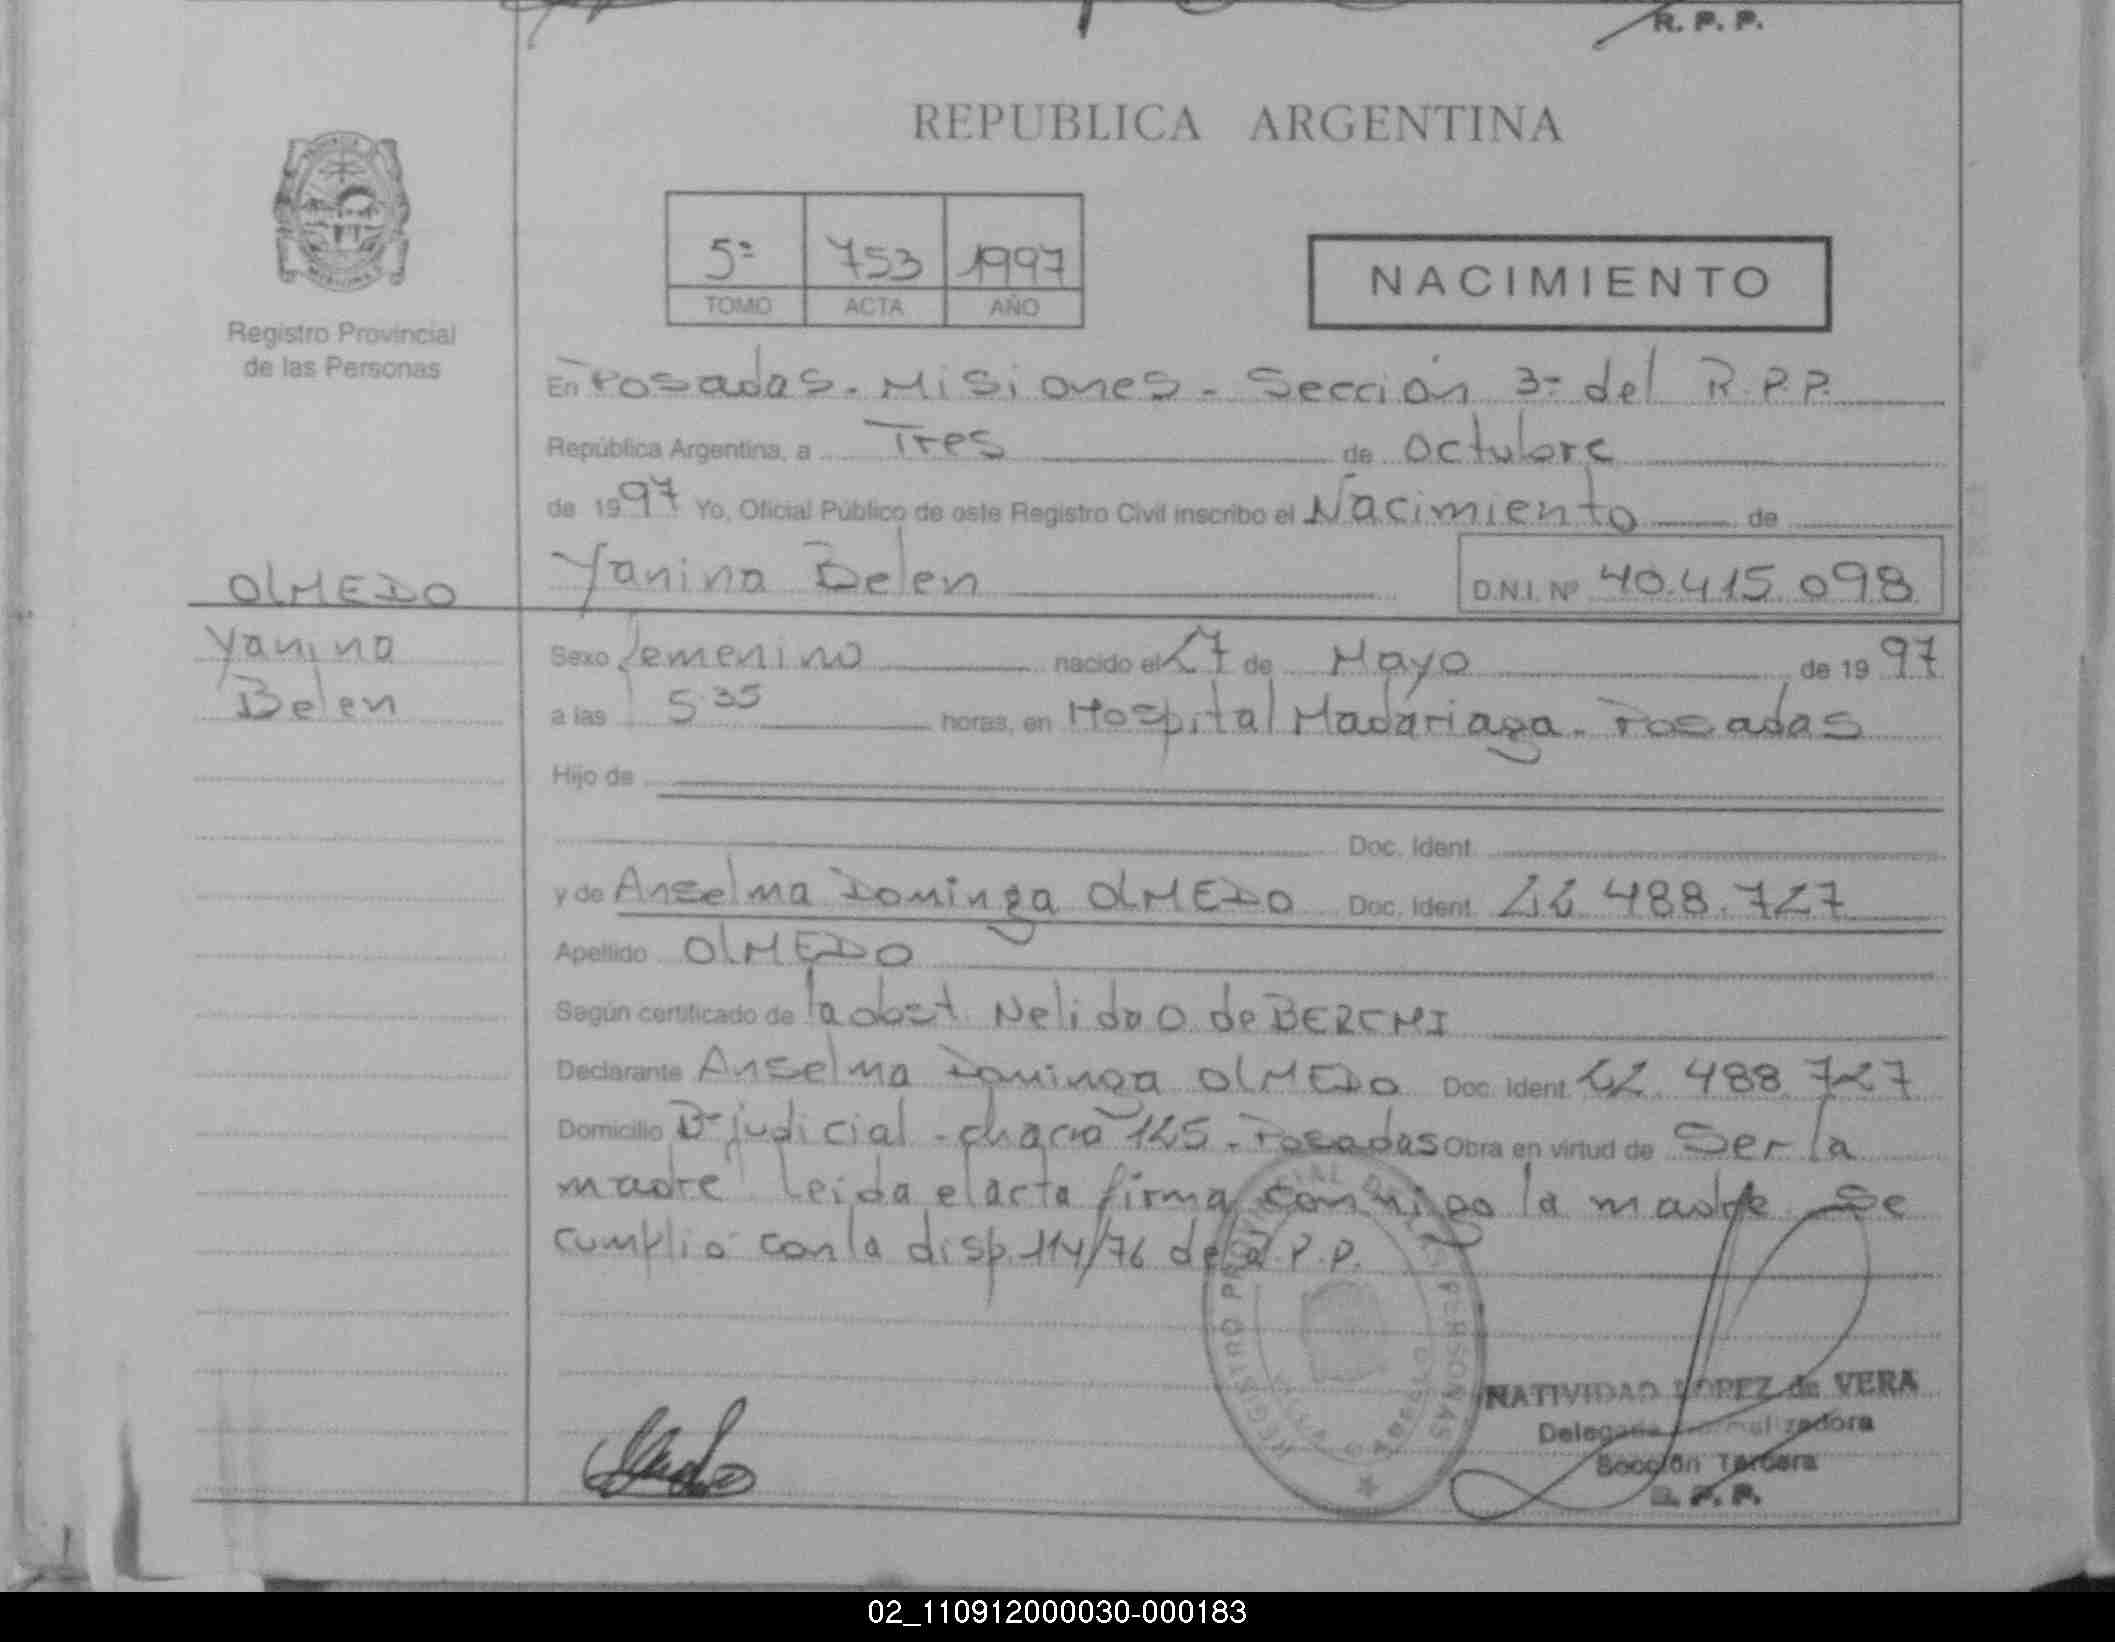 R. P. P.
REPUBLICA ARGENTINA
5º 753 1997
TOMO ACTA AÑO
NACIMIENTO
Registro Provincial
de las Personas
En Posadas - Misiones - Sección 3º del R.P.P.
República Argentina, a Tres de Octubre
de 1997 Yo, Oficial Público de este Registro Civil inscribo el Nacimiento de
OLMEDO
Yanina Belen D.N.I. Nº 40.415.098
Yanina
Belen
Sexo femenino nacido el 27 de Mayo de 1997
a las 5 35 horas, en Hospital Madariaga - Posadas
Hijo de
Doc. Ident.
y de Anselma Dominga OLMEDO Doc. Ident. 22 488.727
Apellido OLMEDO
Según certificado de la obst. Nelida O. de
Declarante Anselma Dominga OLMEDO Doc. Ident. 22.488.727
Domicilio Bº judicial - chacra 125 - Posadas Obra en virtud de Ser la
madre Leida el acta firma conmigo la madre Se
cumplio con la disp. 114/76 del R.P.P.
REGISTRO PROVINCIAL DE LAS PERSONAS
NATIVIDAD LOPEZ de VERA
Delegada Normalizadora
Sección Tercera
R. P. P.
02_110912000030-000183